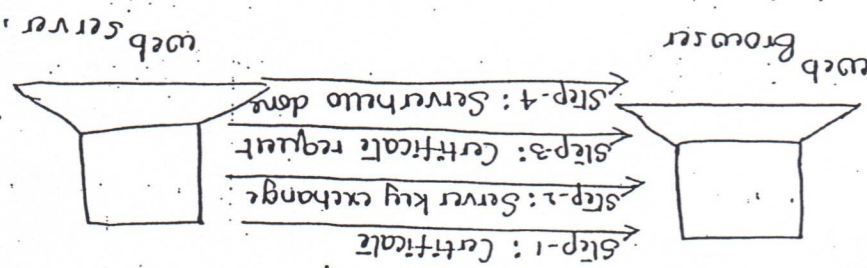 Step-1: Certificate
Step-2: Server key exchange
Step-3: Certificate request
Step-4: Serverhello done
Web Browser
web server.